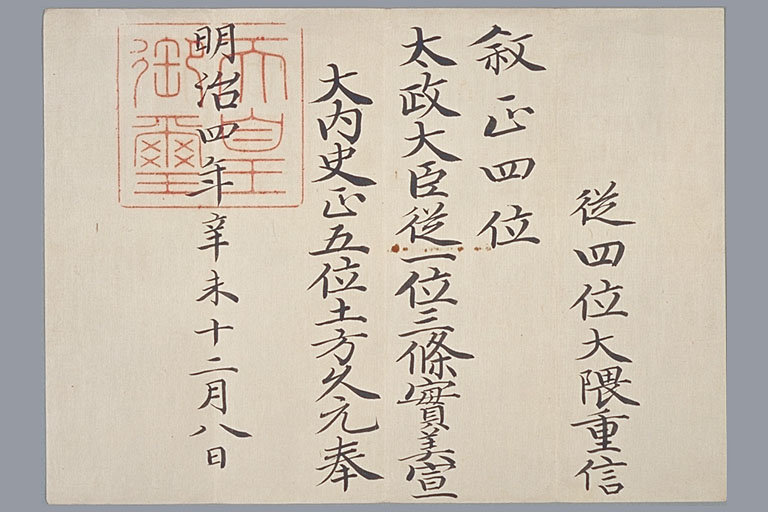 従四位大隈重信
叙正四位
太政大臣従一位三條實美宣
大内史正五位土方久元奉
明治四年辛未十二月八日
天皇
御璽